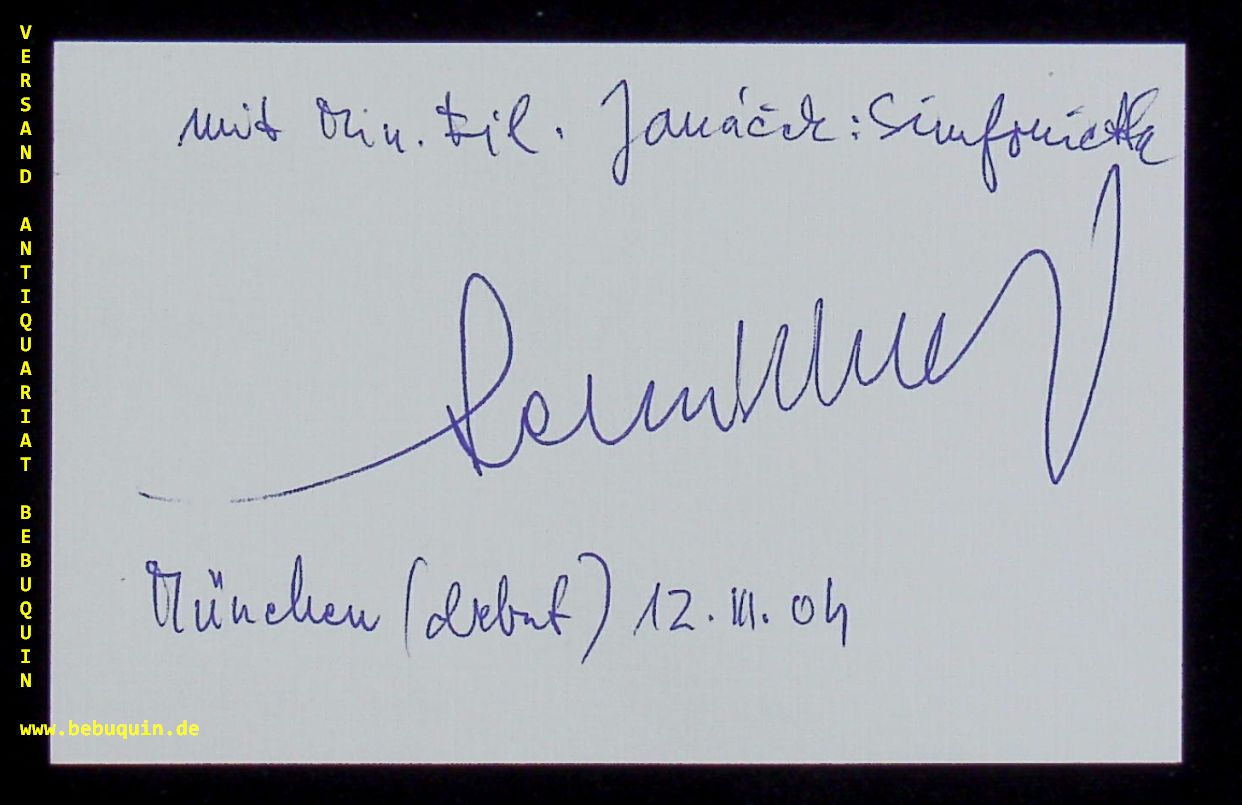 VERSAND ANTIQUARIAT BEBUQUIN
www.bebuquin.de
mit Mün. Fil. Janáček: Simfonietta
München (debut) 12. III. 04